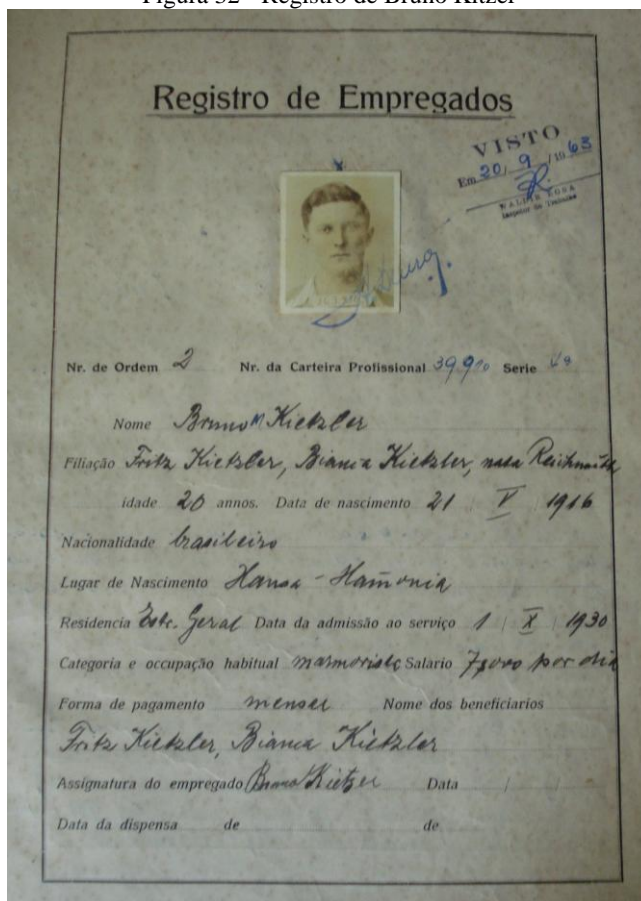 Figura 32 - Registro de Bruno Kitzel
Registro de Empregados
VISTO
Em 20 / 9 / 1963
Nr. de Ordem 2 Nr. da Carteira Profissional Serie
Nome Bruno Kietzler
Filiação Fritz Kietzler, Bianca Kietzler, nata
idade 20 annos. Data de nascimento 21 | V | 1916
Nacionalidade brasileiro
Lugar de Nascimento Hansa - Hamonia
Residencia Estr. Geral Data da admissão ao serviço 1 | X | 1930
Categoria e occupação habitual marmorista Salario por dia
Forma de pagamento mensal Nome dos beneficiarios
Fritz Kietzler, Bianca Kietzler
Assignatura do empregado Bruno Data / /
Data da dispensa de de